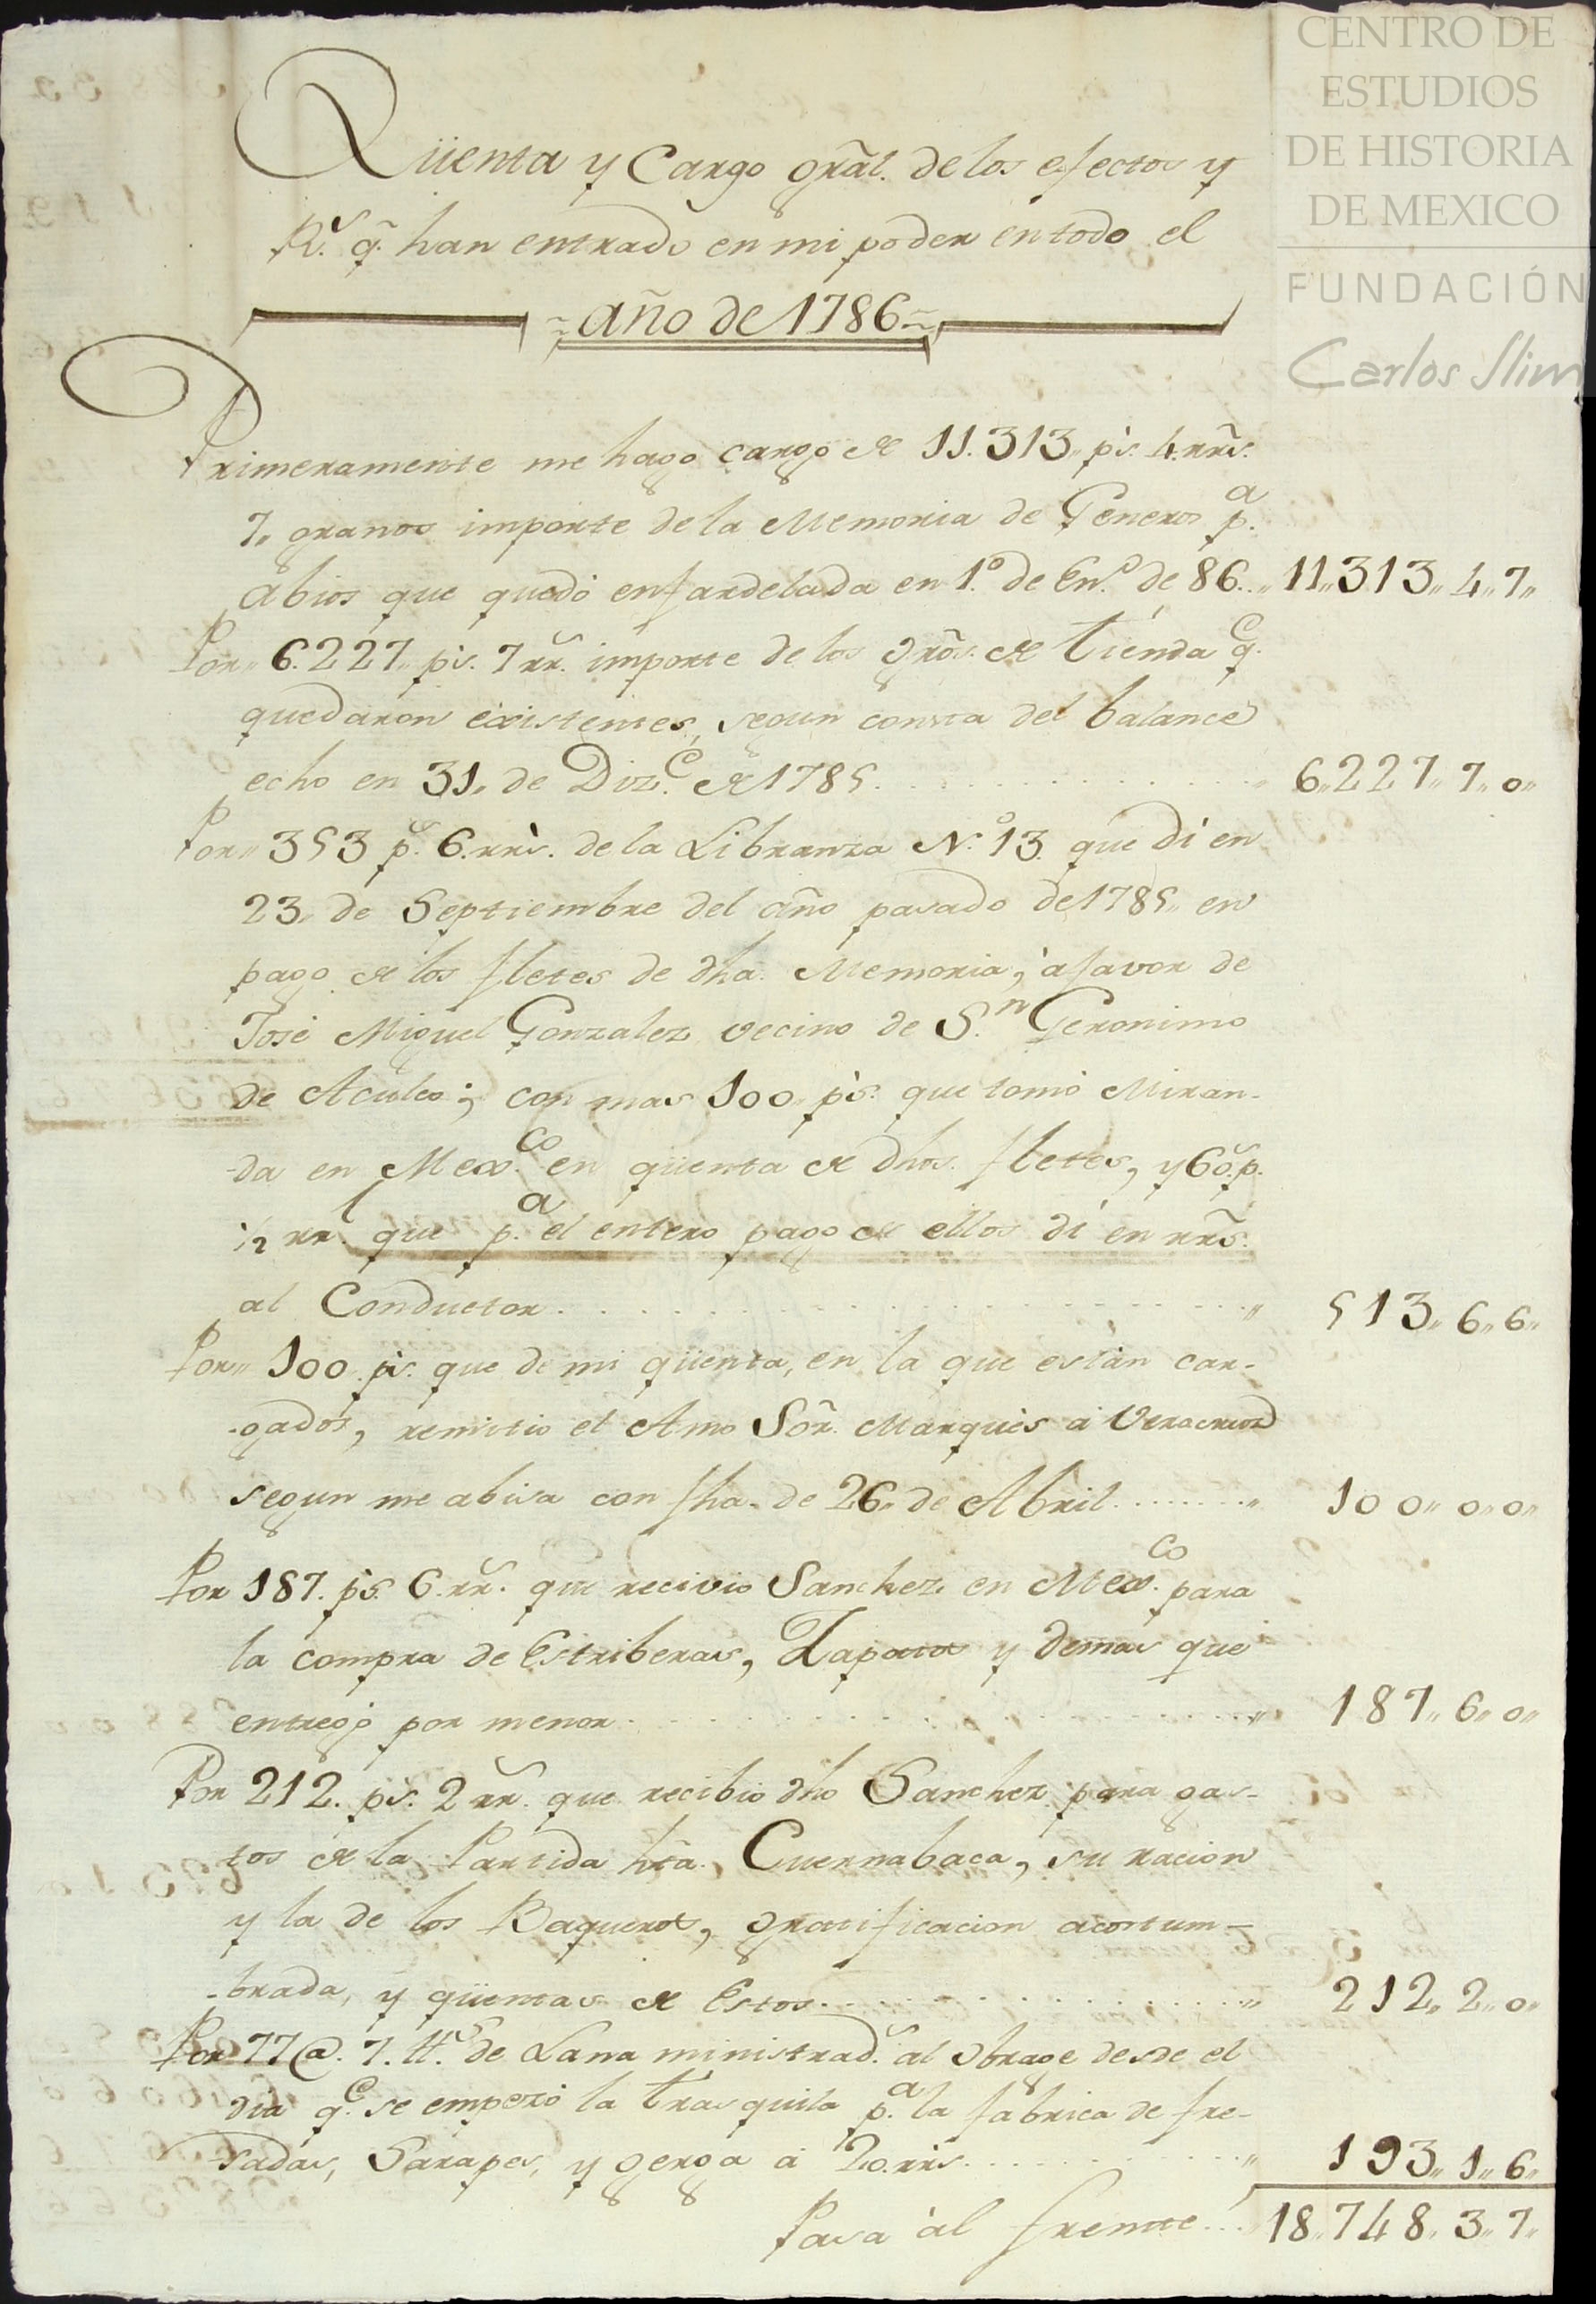 CENTRO DE
ESTUDIOS
DE HISTORIA
DE MEXICO
FUNDACIÓN
Carlos Slim
Qüenta y Cargo gral. de los efectos y
Rs. q. han entrado en mi poder en todo el
año de 1786
Primeramente me hago cargo de 11.313,, ps. 4. rrs.
7,, granos importe de la Memoria de Generos pa.
abios que quedó enfardelada en 1o. de Eno. de 86.. ,, 11,,313,, 4,, 7,,
Por,, 6.227,, ps. 7 rrs. importe de los Gros. de tienda qe.
quedaron existentes, segun consta del balance
echo en 31,, de Dize. de 1785. ,, 6,,227,, 7,, 0,,
Por,, 353 ps. 6. rrs. de la Libranza No. 13. que dí en
23,, de Septiembre del año pasado de 1785,, en
pago de los fletes de dha. Memoria; á favor de
José Miguel Gonzalez vecino de Sn. Geronimo
de Aculco; con mas 100,, ps. que tomó Miran-
-da en Mexco. en qüenta de dhos. fletes, y 60. ps.
1/2 rrl. que pa. el entero pago de ellos dí en rrs.
al Conductor. ,, 513,, 6,, 6,,
Por,, 100. ps. que de mi qüenta, en la que están car-
-gados, remitio el Amo Sör. Marqués á Veracruz
segun me abisa con fha. de 26,, de Abril ,, 100,, 0,, 0,,
Por 187. ps. 6. rrs. que recivio Sanchez en Mexco. para
la compra de Estriberas, Zapatos y demas que
entregó por menor. ,, 187,, 6,, 0,,
Por 212. ps. 2 rrs. que recibio dho Sanchez para gas-
tos de la Partida hta. Cuernabaca, su racion
y la de los Baqueros, gratificacion acostum-
-brada, y qüentas de Estos. ,, 212,, 2,, 0,,
Por 77 @. 7. lls. de Lana ministrads. al Obrage desde el
dia qe. se empezó la trasquila pa. la fabrica de fre-
sadas, Sarapes, y gerga á 20. rrs. ,, 193,, 1,, 6,,
Pasa al frente ... 18,,748,, 3,, 7,,